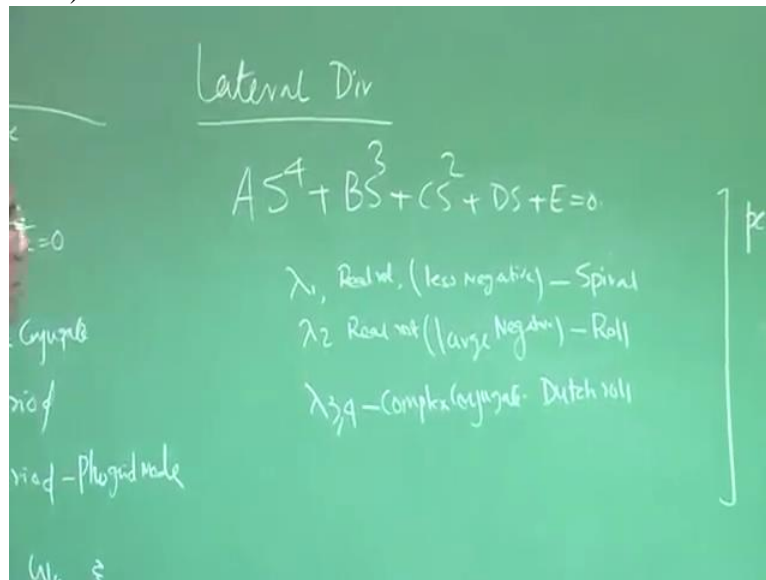 Lateral Div
AS⁴ + BS³ + CS² + DS + E = 0
=0
λ1, Real rot, (less Negative) – Spiral
λ2 Real rot (large Negative) – Roll
Conjugate
λ3,4 – Complex Conjugate - Dutch roll
riod
riod – Phugoid Mode